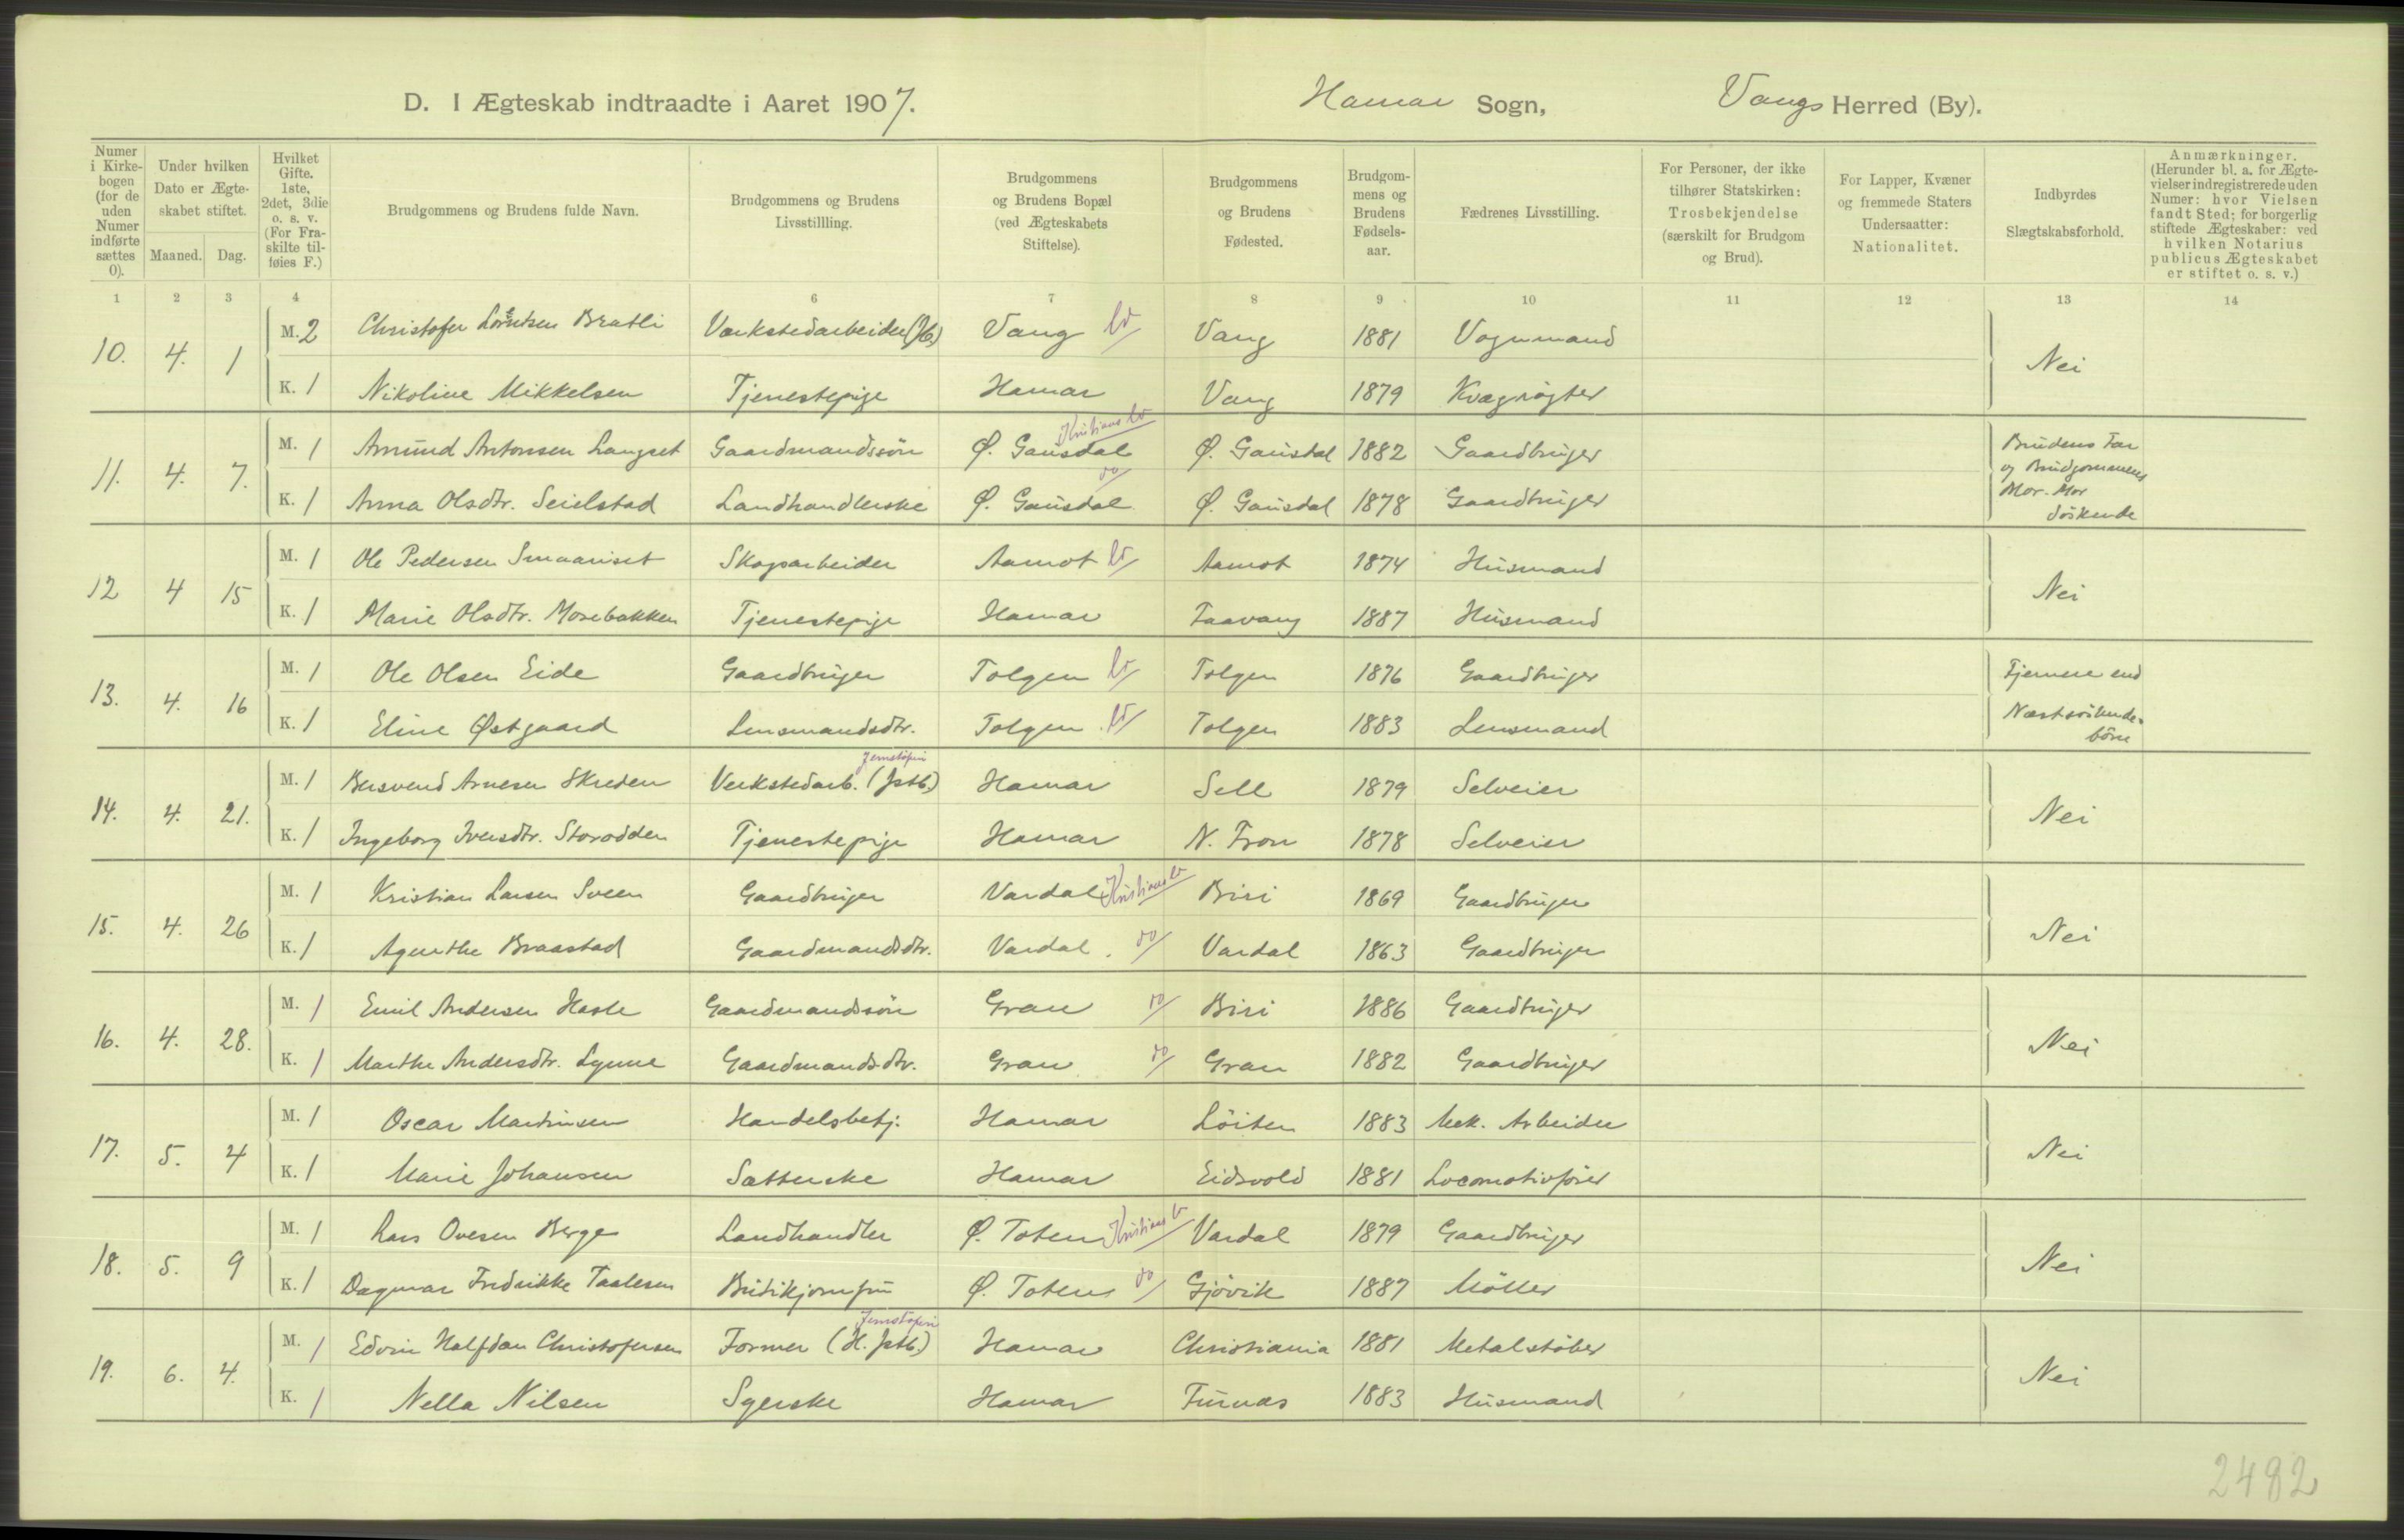 D. I Ægteskab indtraadte i Aaret 1907. Hamar Sogn, Vangs Herred (By).
Numer i Kirkebogen (for de uden Numer indførte sættes 0).
Under hvilken Dato er Ægteskabet stiftet.
Maaned. Dag.
Hvilket Gifte. 1ste, 2det, 3die o. s. v. (For Fraskilte tilføies F.)
Brudgommens og Brudens fulde Navn.
Brudgommens og Brudens Livsstillling.
Brudgommens og Brudens Bopæl (ved Ægteskabets Stiftelse).
Brudgommens og Brudens Fødested.
Brudgommens og Brudens Fødselsaar.
Fædrenes Livsstilling.
For Personer, der ikke tilhører Statskirken: Trosbekjendelse (særskilt for Brudgom og Brud).
For Lapper, Kvæner og fremmede Staters Undersaatter: Nationalitet.
Indbyrdes Slægtskabsforhold.
Anmærkninger. (Herunder bl. a. for Ægtevielser indregistrerede uden Numer: hvor Vielsen fandt Sted; for borgerlig stiftede Ægteskaber: ved hvilken Notarius publicus Ægteskabet er stiftet o. s. v.)
1 2 3 4 6 7 8 9 10 11 12 13 14
10. 4. 1 M. 2 Christofer Lorentsen Bratli Værkstedarbeider Vang Vang 1881 Vognmand Nei
K. 1 Nikoline Mikkelsen Tjenestepige Hamar Vang 1879 Kvægrøgter
11. 4. 7. M. 1 Amund Antonsen Langset Gaardmandssön Ø. Gausdal Kristians Ø. Gausdal 1882 Gaardbruger Brudens Far og Brudgommens Mor. Mor Söskende
K. 1 Anna Olsdtr. Seielstad Landhandlerske Ø. Gausdal do Ø. Gausdal 1878 Gaardbruger
12 4 15 M. 1 Ole Pedersen Smaariset Skogsarbeider Aamot Aamot 1874 Husmand Nei
K. 1 Marie Olsdtr. Mosebakken Tjenestepige Hamar Faavang 1887 Husmand
13. 4. 16 M. 1 Ole Olsen Eide Gaardbruger Tolgen Tolgen 1876 Gaardbruger Fjernere end Næstsöskendebörn
K. 1 Eline Østgaard Lensmandsdtr. Tolgen Tolgen 1883 Lensmand
14. 4. 21. M. 1 Bersvend Arnesen Skreden Verkstedarb. (Jstb.) Jernstøperi Hamar Sell 1879 Selveier Nei
K. 1 Ingeborg Iversdtr. Storodden Tjenestepige Hamar N. Fron 1878 Selveier
15. 4. 26 M. 1 Kristian Larsen Sveen Gaardbruger Vardal Kristians Biri 1869 Gaardbruger Nei
K. 1 Agenthe Braastad Gaardmandsdtr. Vardal. do Vardal 1863 Gaardbruger
16. 4. 28. M. 1 Emil Andersen Hasle Gaardmandssön Gran do Biri 1886 Gaardbruger Nei
K. 1 Marthe Andersdtr. Lynne Gaardmandsdtr. Gran do Gran 1882 Gaardbruger
17. 5. 4 M. 1 Oscar Martinsen Handelsbetj. Hamar Löiten 1883 Mek. Arbeider Nei
K. 1 Marie Johansen Sætterske Hamar Eidsvold 1881 Locomotivfører
18. 5. 9 M. 1 Lars Ovesen Berge Landhandler Ø. Toten Kristians Vardal 1879 Gaardbruger Nei
K. 1 Dagmar Fredrikke Taalesen Butikjomfru Ø. Toten do Gjövik 1887 Möller
19. 6. 4. M. 1 Edvin Halfdan Christofersen Former (H. Jstb.) Jernstøperi Hamar Christiania 1881 Metalstøber Nei
K. 1 Nella Nilsen Syerske Hamar Furnæs 1883 Husmand
2482